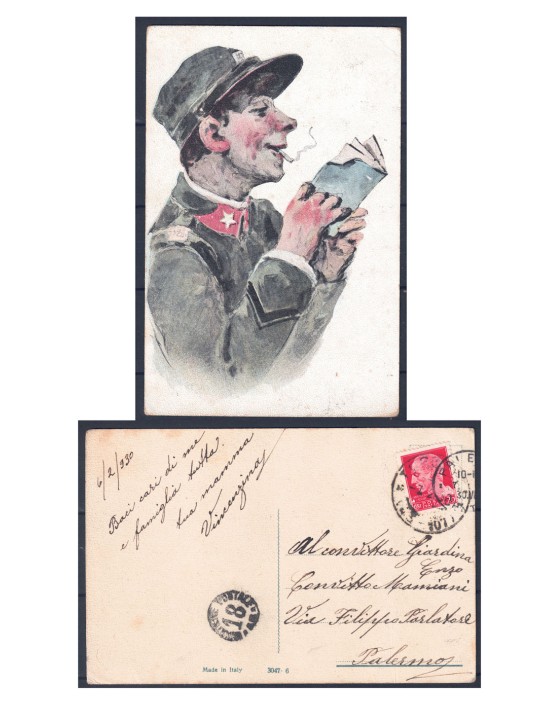 6/2/930
Baci cari di me
e famiglia tutta.
tua mamma
Vincenzina
Al convittore Giardina
Enzo
Convitto Mamiani
Via Filippo Parlatore
Palermo
18
Made in Italy 3047-6